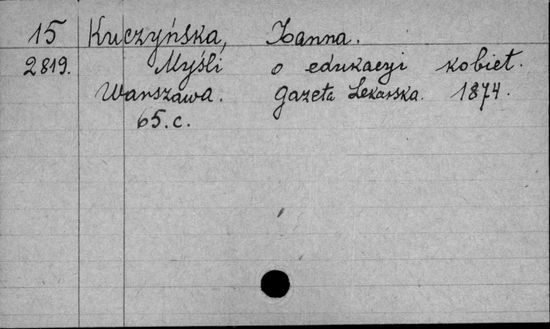 15 Kuczyńska, Xanna.
2819. Myśli o edukacyi kobiet.
Warszawa. Gazeta Lekarska. 1874.
65. c.